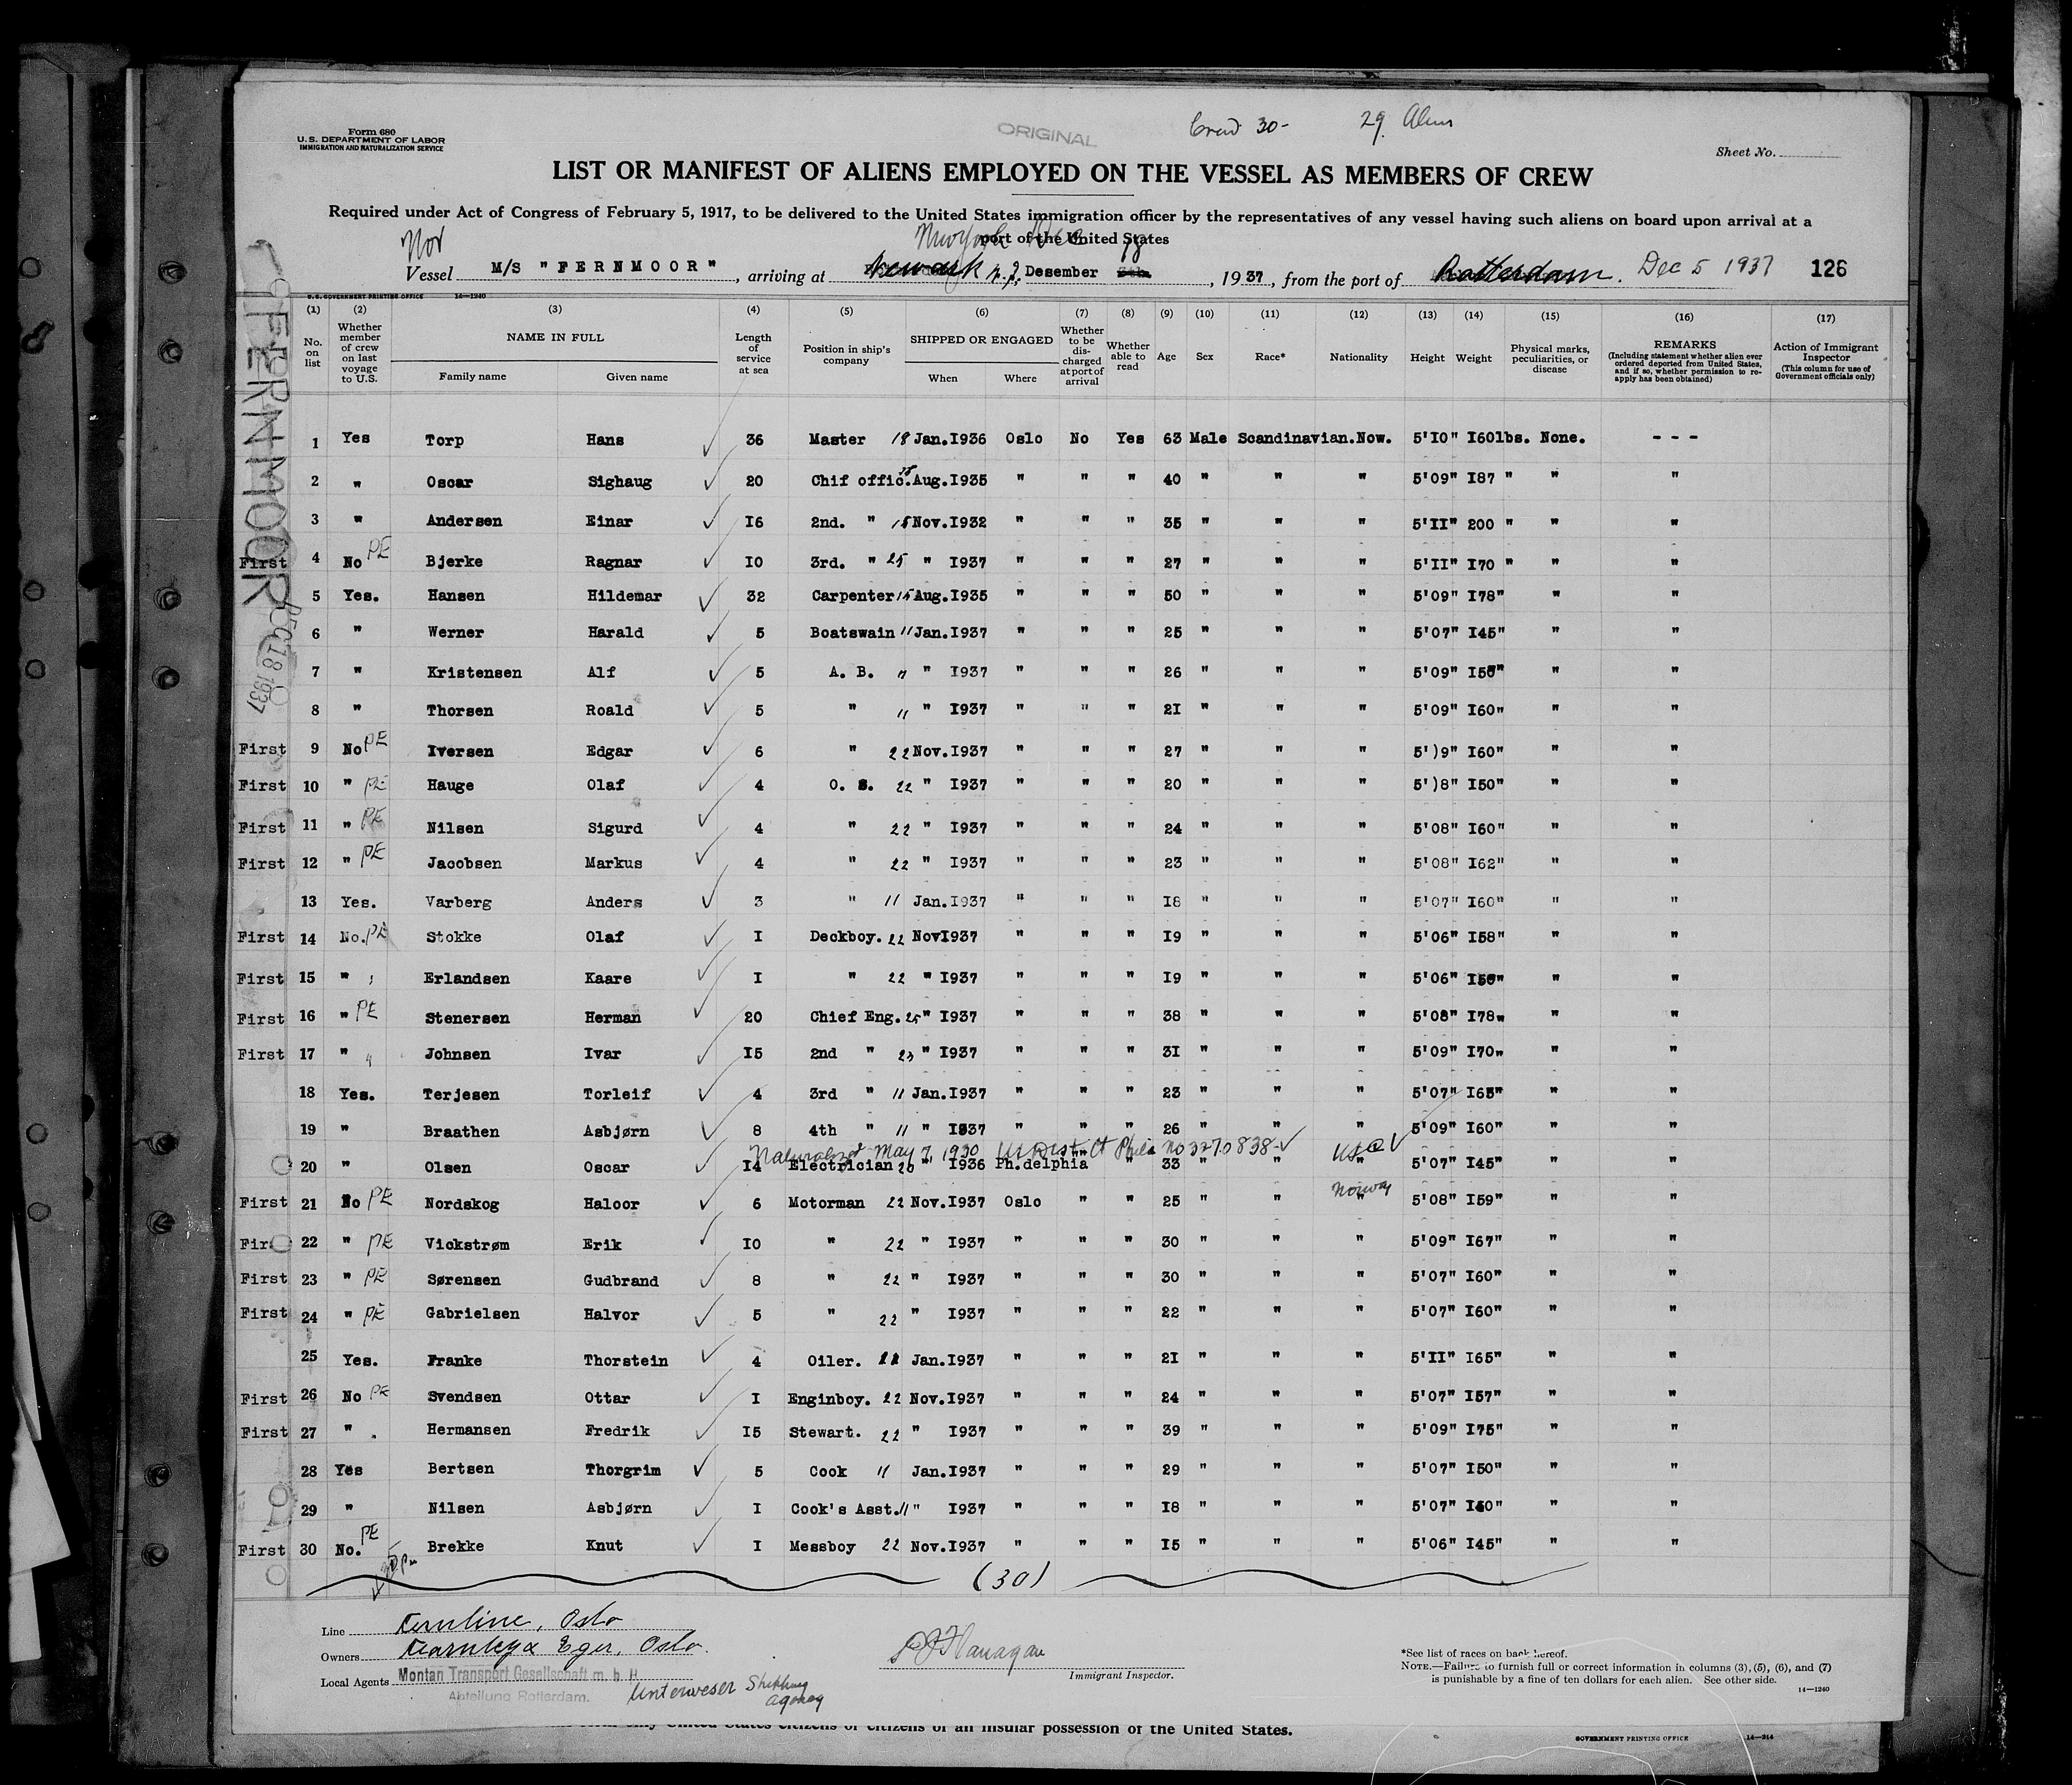 Form 680
U.S. DEPARTMENT OF LABOR
IMMIGRATION AND NATURALIZATION SERVICE
ORIGINAL
Crew 30- 29 Aliens
Sheet No.
LIST OR MANIFEST OF ALIENS EMPLOYED ON THE VESSEL AS MEMBERS OF CREW
Required under Act of Congress of February 5, 1917, to be delivered to the United States immigration officer by the representatives of any vessel having such aliens on board upon arrival at a
port of the United States
Nor New York Dec 18
Vessel M/S "FERNMOOR", arriving at Newark N.J. Desember, 1937, from the port of Rotterdam. Dec 5 1937 126
U.S. GOVERNMENT PRINTING OFFICE 14—1240
(1) (2) (3) (4) (5) (6) (7) (8) (9) (10) (11) (12) (13) (14) (15) (16) (17)
No. on list Whether member of crew on last voyage to U.S. NAME IN FULL Family name Given name Length of service at sea Position in ship's company SHIPPED OR ENGAGED When Where Whether to be discharged at port of arrival Whether able to read Age Sex Race* Nationality Height Weight Physical marks, peculiarities, or disease REMARKS (Including statement whether alien ever ordered deported from United States, and if so, whether permission to reapply has been obtained) Action of Immigrant Inspector (This column for use of Government officials only)
FERNMOOR
DEC 18 1937
1 Yes Torp Hans 36 Master 18 Jan.I936 Oslo No Yes 63 Male Scandinavian.Now. 5'IO" I60lbs. None. - - -
2 " Oscar Sighaug 20 Chif offic. Aug.I935 " " " 40 " " " 5'09" I87 " " "
3 " Andersen Einar I6 2nd. " 15 Nov.I932 " " " 35 " " " 5'II" 200 " " "
First 4 No PE Bjerke Ragnar IO 3rd. " 25 " I937 " " " 27 " " " 5'II" I70 " " "
5 Yes. Hansen Hildemar 32 Carpenter 15 Aug.I935 " " " 50 " " " 5'09" I78" " "
6 " Werner Harald 5 Boatswain 11 Jan.I937 " " " 25 " " " 5'07" I45" " "
7 " Kristensen Alf 5 A. B. 11 " I937 " " " 26 " " " 5'09" I50" " "
8 " Thorsen Roald 5 " 11 " I937 " " " 2I " " " 5'09" I60" " "
First 9 No PE Iversen Edgar 6 " 22 Nov.I937 " " " 27 " " " 5')9" I60" " "
First 10 " PE Hauge Olaf 4 O. S. 22 " I937 " " " 20 " " " 5')8" I50" " "
First 11 " PE Nilsen Sigurd 4 " 22 " I937 " " " 24 " " " 5'08" I60" " "
First 12 " PE Jacobsen Markus 4 " 22 " I937 " " " 23 " " " 5'08" I62" " "
13 Yes. Varberg Anders 3 " 11 Jan.I937 " " " I8 " " " 5'07" I60" " "
First 14 No. PE Stokke Olaf I Deckboy. 22 NovI937 " " " I9 " " " 5'06" I58" " "
First 15 " Erlandsen Kaare I " 22 " I937 " " " I9 " " " 5'06" I50" " "
First 16 " PE Stenersen Herman 20 Chief Eng. 25 " I937 " " " 38 " " " 5'08" I78" " "
First 17 " Johnsen Ivar I5 2nd " 23 " I937 " " " 3I " " " 5'09" I70" " "
18 Yes. Terjesen Torleif 4 3rd " 11 Jan.I937 " " " 23 " " " 5'07" I65" " "
19 " Braathen Asbjørn 8 4th " 11 " I937 " " " 26 " " " 5'09" I60" " "
Naturalized May 7, 1930 US Dist Ct Phila No 3270838 USA
20 " Olsen Oscar I4 Electrician 20 " I936 Ph.delphia " " 33 " " " 5'07" I45" " "
Norway
First 21 No PE Nordskog Haloor 6 Motorman 22 Nov.I937 Oslo " " 25 " " " 5'08" I59" " "
First 22 " PE Vickstrøm Erik IO " 22 " I937 " " " 30 " " " 5'09" I67" " "
First 23 " PE Sørensen Gudbrand 8 " 22 " I937 " " " 30 " " " 5'07" I60" " "
First 24 " PE Gabrielsen Halvor 5 " 22 " I937 " " " 22 " " " 5'07" I60" " "
25 Yes. Franke Thorstein 4 Oiler. 11 Jan.I937 " " " 2I " " " 5'II" I65" " "
First 26 No PE Svendsen Ottar I Enginboy. 22 Nov.I937 " " " 24 " " " 5'07" I57" " "
First 27 " Hermansen Fredrik I5 Stewart. 22 " I937 " " " 39 " " " 5'09" I75" " "
28 Yes Bertsen Thorgrim 5 Cook 11 Jan.I937 " " " 29 " " " 5'07" I50" " "
29 " Nilsen Asbjørn I Cook's Asst. 11 " I937 " " " I8 " " " 5'07" I50" " "
First 30 No. PE Brekke Knut I Messboy 22 Nov.I937 " " " I5 " " " 5'06" I45" " "
(30)
Line Fernline, Oslo
Owners Fearnley & Eger, Oslo.
Local Agents Montan Transport Gesellschaft m. b. H.
Abteilung Rotterdam. Unterweser Shipping Agency
Flanagan
Immigrant Inspector.
*See list of races on back hereof.
NOTE.—Failure to furnish full or correct information in columns (3), (5), (6), and (7)
is punishable by a fine of ten dollars for each alien. See other side.
14—1240
only United States citizens or citizens of an insular possession of the United States.
GOVERNMENT PRINTING OFFICE 14—214